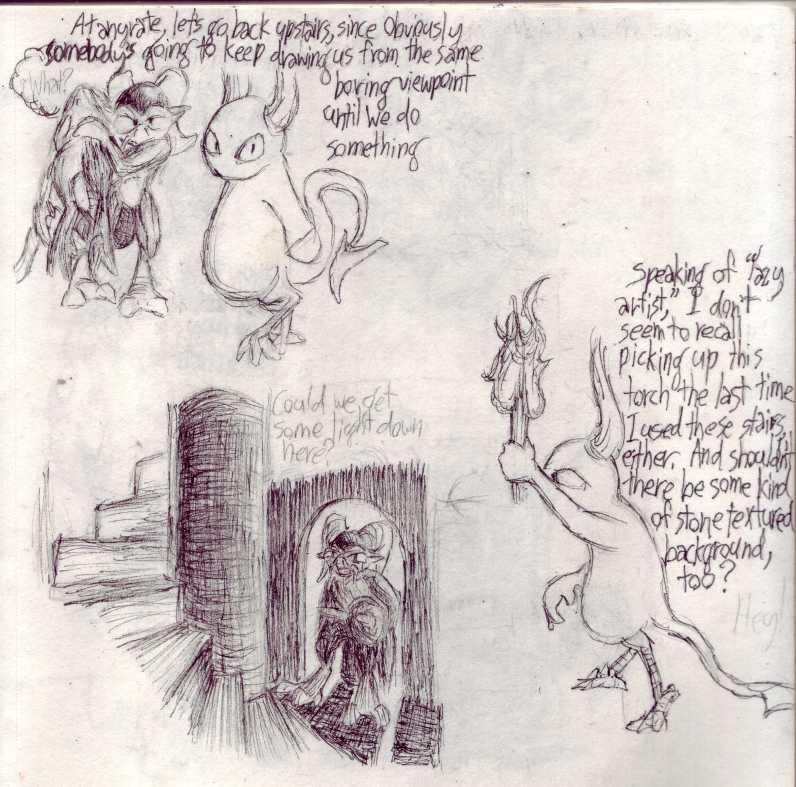 At anyrate, let's go back upstairs, since Obviously
somebody's going to keep drawing us from the same
boring viewpoint
until we do
something
What?
Could we get
some light down
here?
Speaking of "lazy
artist," I don't
seem to recall
picking up this
torch the last time
I used these stairs,
either. And shouldn't
there be some kind
of stone textured
background,
too?
Hey!